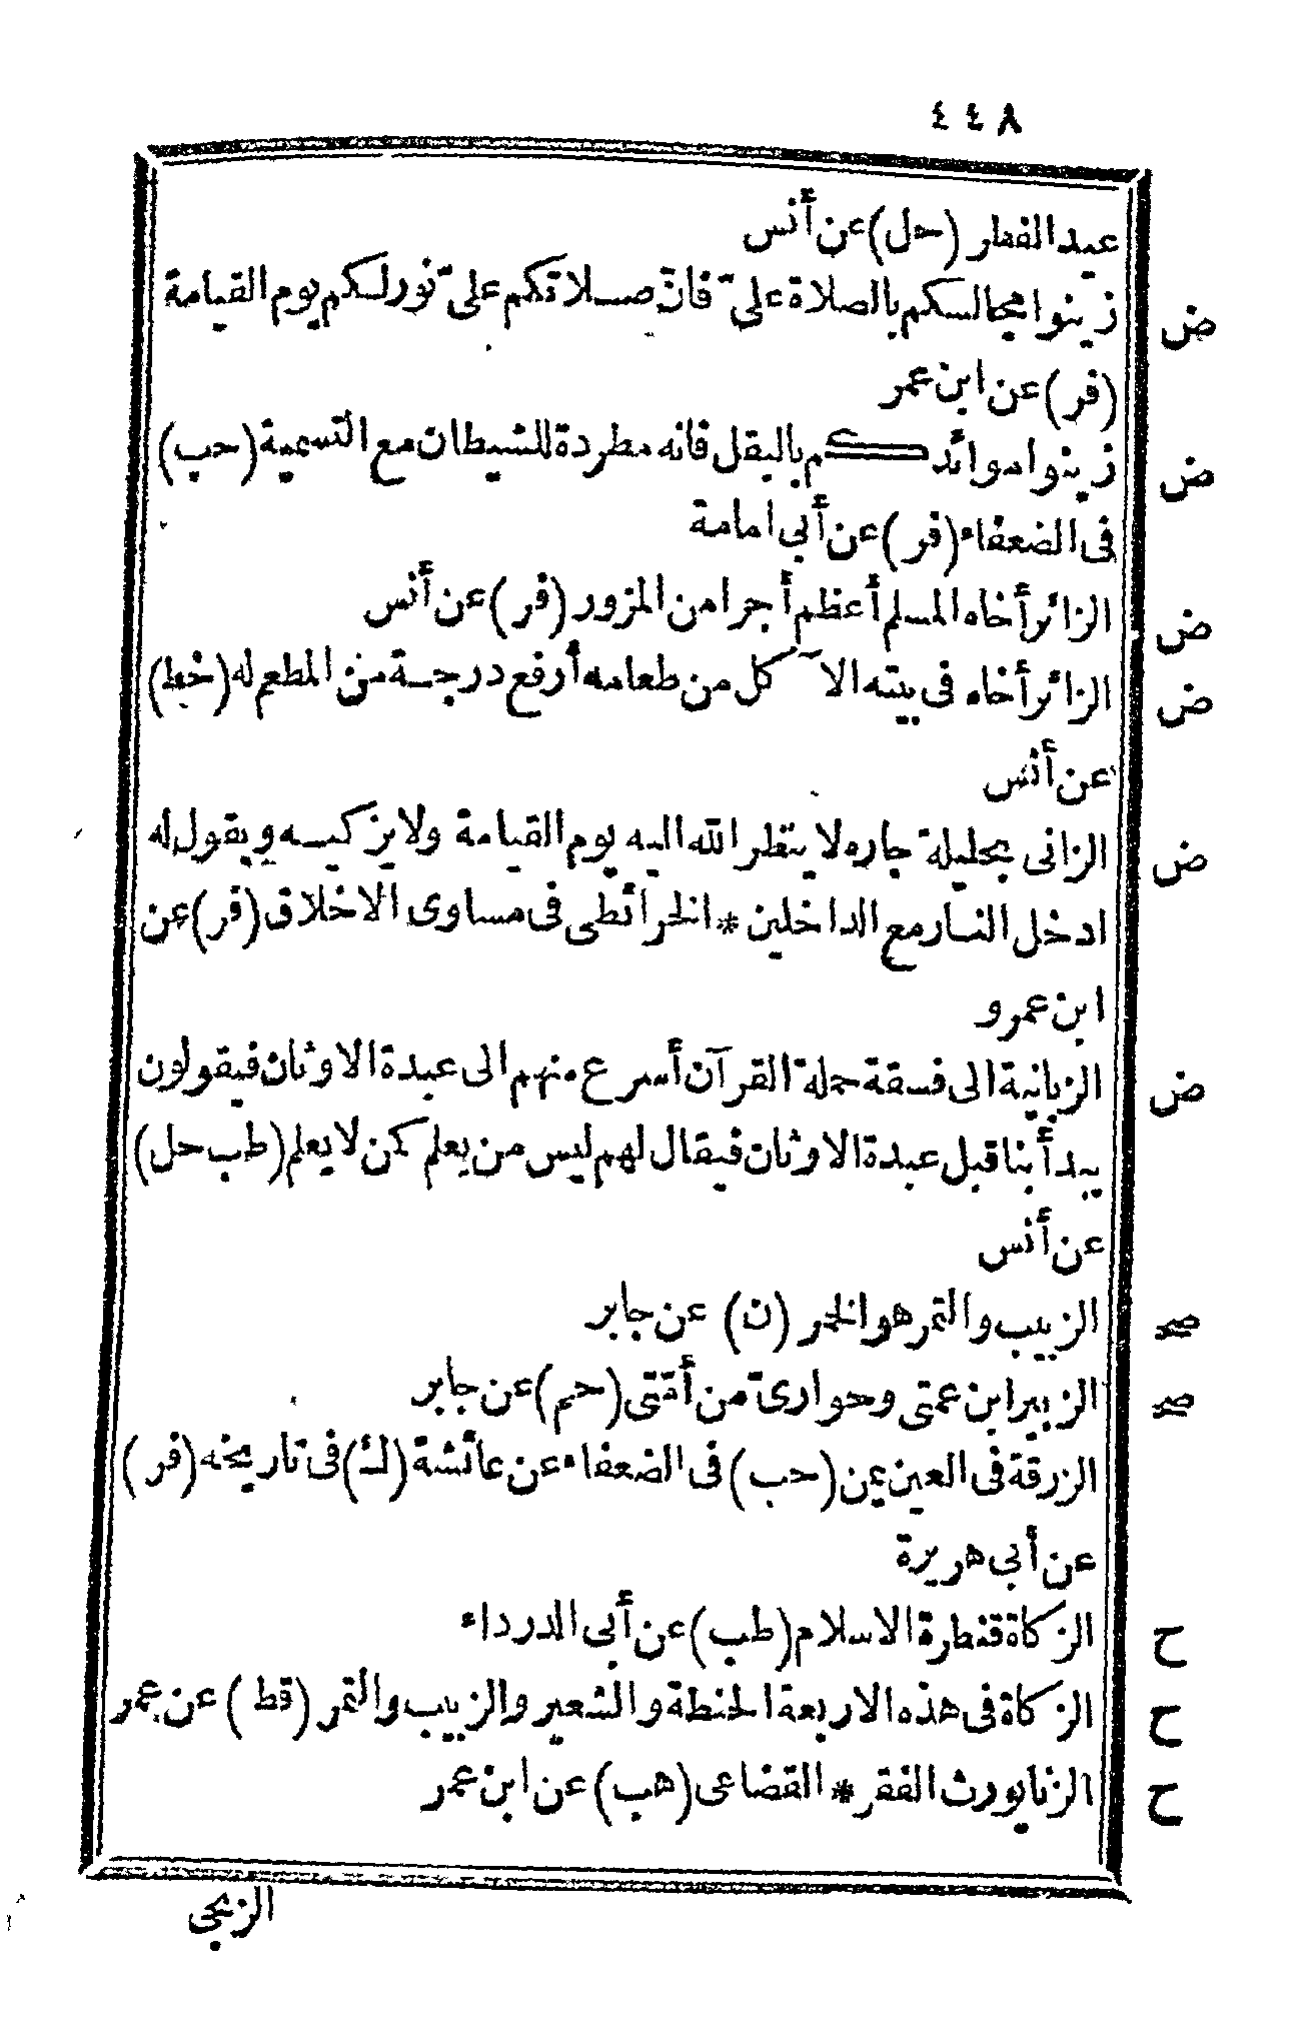 ٤٤٨
عيد الفطر (حل) عن أنس
ض زينوا مجالسكم بالصلاة علىّ فانّ صلاتكم علىّ نور لكم يوم القيامة
(فر) عن ابن عمر
ض زينوا موائدكم بالبقل فانه مطردة للشيطان مع التسمية (حب)
فى الضعفاء (فر) عن أبى امامة
ض الزائر أخاه المسلم أعظم أجرا من المزور (فر) عن أنس
ض الزائر أخاه فى بيته الآكل من طعامه أرفع درجة من المطعم له (خط)
عن أنس
ض الزانى بحليلة جاره لا ينظر الله اليه يوم القيامة ولا يزكيه ويقول له
ادخل النار مع الداخلين * الخرائطى فى مساوى الاخلاق (فر) عن
ابن عمرو
ض الزبانية الى فسقة حملة القرآن أسرع منهم الى عبدة الاوثان فيقولون
يبدأ بنا قبل عبدة الاوثان فيقال لهم ليس من يعلم كمن لا يعلم (طب حل)
عن أنس
صح الزبيب والتمر هو الخمر (ن) عن جابر
صح الزبير ابن عمتى وحوارىّ من أمّتى (حم) عن جابر
الزرقة فى العين يمن (حب) فى الضعفاء عن عائشة (ك) فى تاريخه (فر)
عن أبى هريرة
ح الزكاة قنطرة الاسلام (طب) عن أبى الدرداء
ح الزكاة فى هذه الاربعة الحنطة والشعير والزبيب والتمر (قط) عن عمر
ح الزنا يورث الفقر * القضاعى (هب) عن ابن عمر
الزنجى